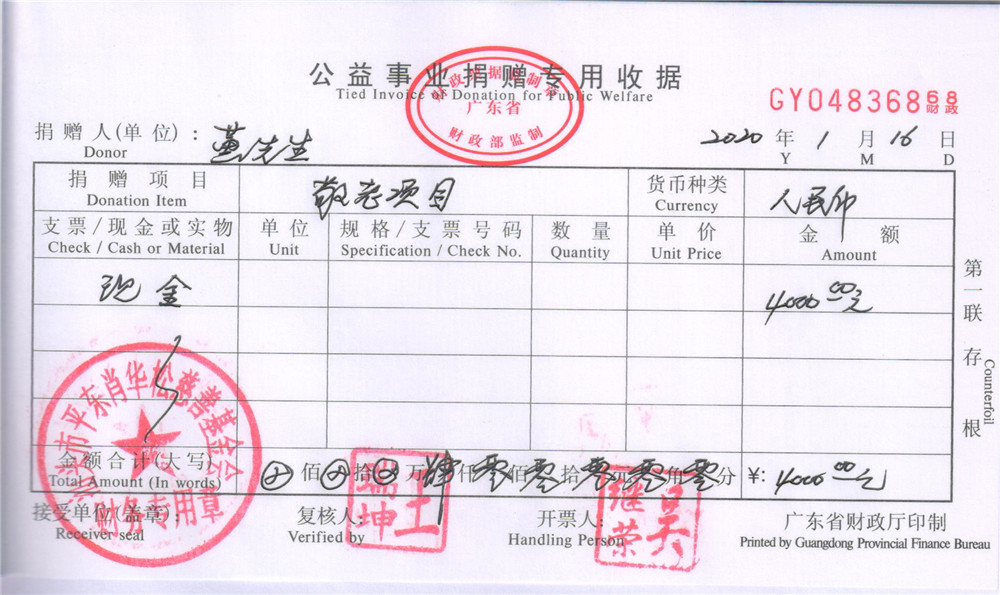 公益事业捐赠专用收据
Tied Invoice of Donation for Public Welfare
广东省
财政部监制
GY04836868
财政
捐赠人(单位): 董先生 2020 年 1 月 16 日
Donor Y M D
捐赠项目 敬老项目 货币种类 人民币
Donation Item Currency
支票/现金或实物 单位 规格/支票号码 数量 单价 金额
Check / Cash or Material Unit Specification / Check No. Quantity Unit Price Amount
现金 4000.00元
第一联存根
Counterfoil
金额合计(大写) 佰 拾 万 肆仟零佰零拾零元零角零分 ¥: 4000.00元
Total Amount (In words)
市平东肖华松慈善基金会
财务专用章
接受单位(盖章): 复核人: 开票人: 广东省财政厅印制
Receiver seal Verified by Handling Person Printed by Guangdong Provincial Finance Bureau
王瑞坤
吴继荣